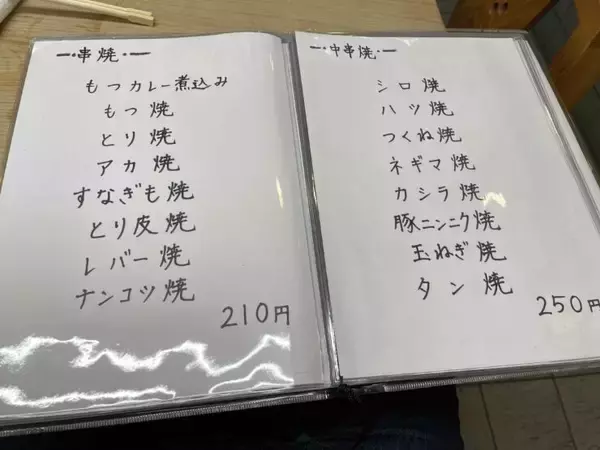 一・串焼・一
もつカレー煮込み
もつ焼
とり焼
アカ焼
すなぎも焼
とり皮焼
レバー焼
ナンコツ焼
210円
一・串焼・一
シロ焼
ハツ焼
つくね焼
ネギマ焼
カシラ焼
豚ニンニク焼
玉ねぎ焼
タン焼
250円